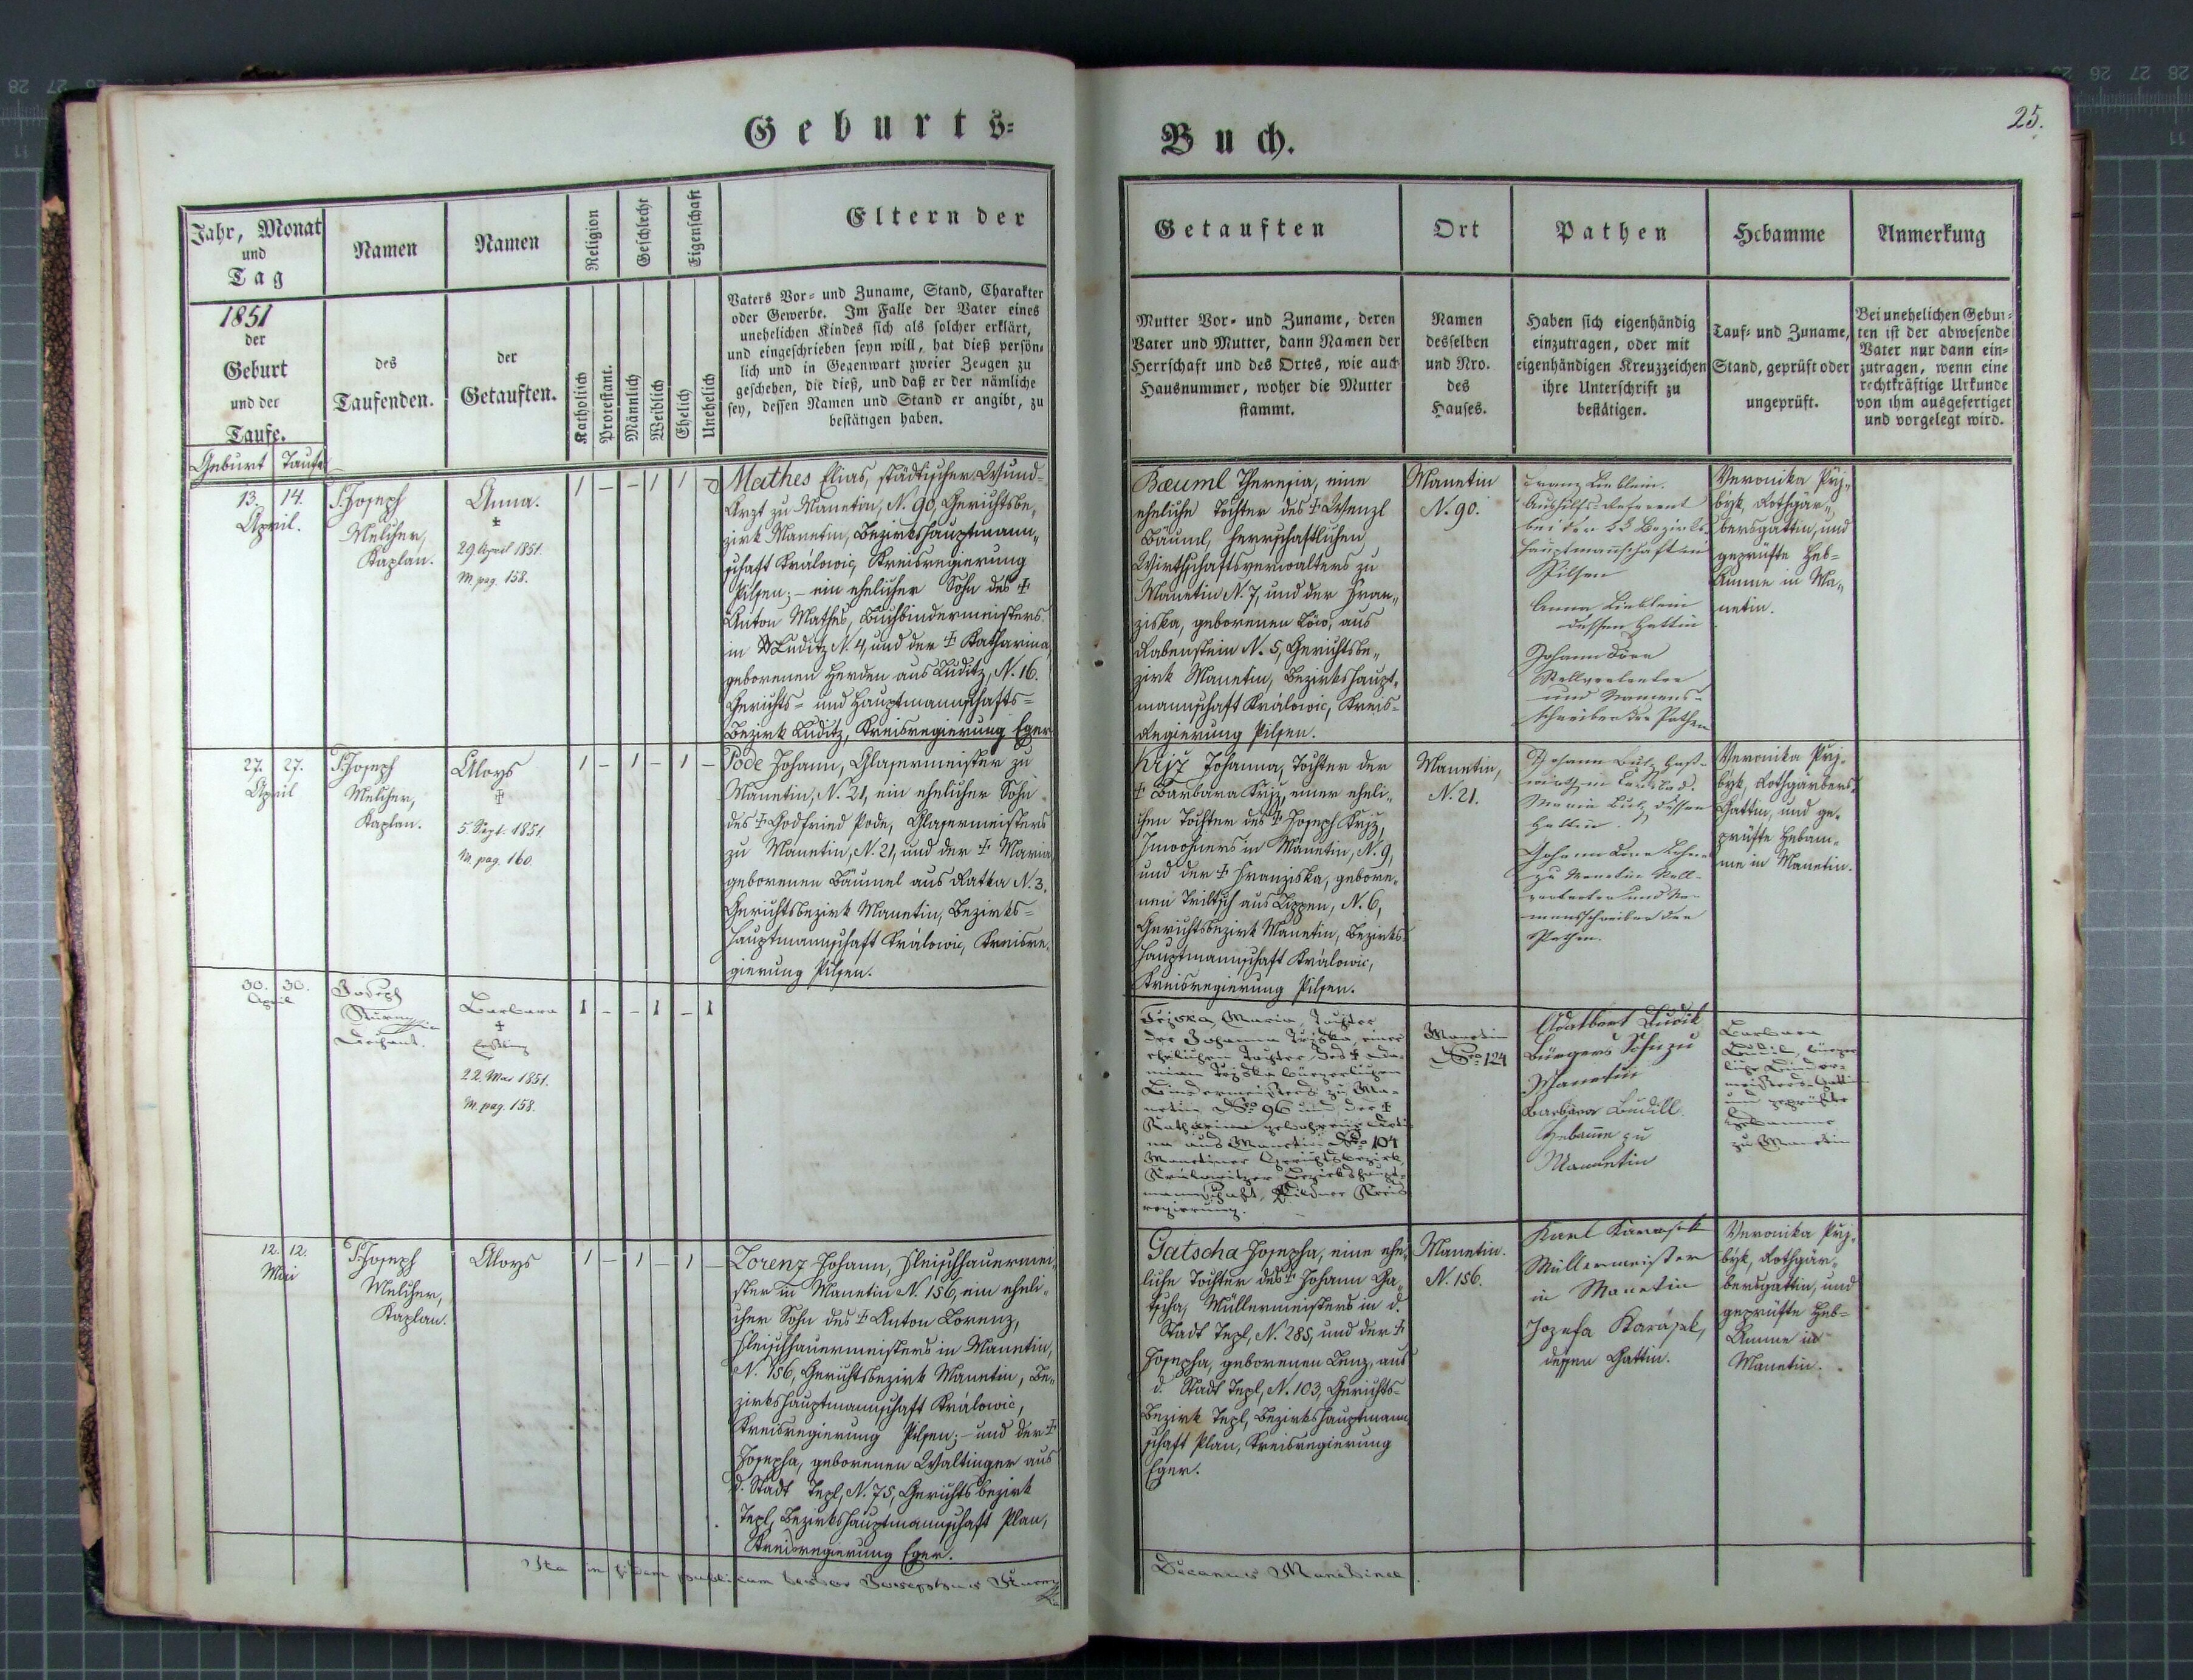 Geburts=
Buch.
25.
Jahr, Monat
und
Tag
1851
der
Geburt
und der
Taufe.
Geburt Taufe
Namen
des
Taufenden.
Namen
der
Getauften.
Religion
Katholisch
Protestant.
Geschlecht
Männlich
Weiblich
Eigenschaft
Ehelich
Unehelich
Eltern der
Vaters Vor= und Zuname, Stand, Charakter
oder Gewerbe. Im Falle der Vater eines
unehelichen Kindes sich als solcher erklärt,
und eingeschrieben seyn will, hat dieß persön=
lich und in Gegenwart zweier Zeugen zu
geschehen, die dieß, und daß er der nämliche
sey, dessen Namen und Stand er angibt, zu
bestätigen haben.
Getauften
Mutter Vor= und Zuname, deren
Vater und Mutter, dann Namen der
Herrschaft und des Ortes, wie auch
Hausnummer, woher die Mutter
stammt.
Ort
Namen
desselben
und Nro.
des
Hauses.
Pathen
Haben sich eigenhändig
einzutragen, oder mit
eigenhändigen Kreuzzeichen
ihre Unterschrift zu
bestätigen.
Hebamme
Tauf= und Zuname,
Stand, geprüft oder
ungeprüft.
Anmerkung
Bei unehelichen Gebur=
ten ist der abwesende
Vater nur dann ein=
zutragen, wenn eine
rechtkräftige Urkunde
von ihm ausgefertiget
und vorgelegt wird.
13. 14.
April.
P. Joseph
Melcher,
Kaplan.
Anna.
+
29 April 1851.
M. pag. 158.
1 – – 1 1 –
Mathes Elias, städtischer Wund=
Arzt zu Manetin, N. 90, Gerichtsbe„
zirk Manetin, Bezirkshauptmann„
schaft Králowic, Kreisregierung
Pilsen; – ein ehelicher Sohn des +
Anton Mathes, Buchbindermeisters
in Luditz N. 4, und der + Katharina,
geborenen Herden aus Luditz, N. 16.
Gerichts= und Hauptmannschafts=
Bezirk Luditz, Kreisregierung Eger
Bæuml Theresia, eine
eheliche Tochter des + Wenzl
Bäuml, herrschaftlichen
Wirthschaftsverwalters zu
Manetin N. 7, und der Fran„
ziska, geborenen Löw, aus
Rabenstein N. 5, Gerichtsbe„
zirk Manetin, Bezirkshaupt„
mannschaft Králowic, Kreis=
Regierung Pilsen.
Manetin
N. 90.
Franz Lieblein.
Aushilfs-Referent
bei der kk Bezirks-
hauptmannschaft in
Pilsen
Anna Lieblein
dessen Gattin
Johann
Stellvertreter
und Namens=
schreiber der Pathen
Veronika Přj„
býk, Rothgär„
bersgattin, und
geprüfte Heb=
Amme in Ma„
netin.
27. 27.
April
P. Joseph
Melcher,
Kaplan.
Aloys
+
5 Sept. 1851
M. pag. 160
1 – 1 – 1 –
Pode Johann, Glasermeister zu
Manetin, N. 21, ein ehelicher Sohn
des + Godfried Pode, Glasermeisters
zu Manetin, N. 21, und der + Maria
geborenen Bäumel aus Ratka N. 3.
Gerichtsbezirk Manetin, Bezirks=
hauptmannschaft Králowic, Kreisre„
gierung Pilsen.
Křjž Johanna, Tochter der
+ Barbara Křjž, einer eheli„
chen Tochter des + Joseph Křjž,
Inwohners in Manetin, N. 9,
und der + Franziska, gebore„
nen Triltsch aus Lippen, N. 6,
Gerichtsbezirk Manetin, Bezirks
hauptmannschaft Králowic,
Kreisregierung Pilsen.
Manetin,
N. 21.
Johann Gast-
wirth in
Maria dessen
Gattin.
Johann
zu Manetin Stell-
vertreter und Na-
mensschreiber der
Pathen.
Veronika Přj„
býk, Rothgärbers„
Gattin, und ge„
prüfte Hebam„
me in Manetin.
30. 30.
April
Joseph
Sturm
Dechant.
Barbara
+
22. Mai 1851.
M. pag. 158.
1 – – 1 – 1
Maria, Tochter
der Johanna einer
ehelichen Tochter des +
bürgerlichen
Bindermeisters zu Ma-
netin Nro 96 und der +
Katharina
aus Manetin Nro 104
Manetiner Gerichtsbezirk,
Kralowitzer Bezirkshaupt-
mannschaft, Pilsner Kreis
regierung.
Manetin
Nro 124
Adalbert
Bürgers Sohn zu
Manetin
Barbara Budill
Hebamme zu
Mannetin
Barbara
Budil, bürger
liche Binder-
meisters Gattin
und geprüfte
Hebamme
zu Manetin
12. 12.
Mai
P. Joseph
Melcher,
Kaplan.
Aloys
1 – 1 – 1 –
Lorenz Johann, Fleischhauermei„
ster in Manetin N. 156, ein eheli„
cher Sohn des + Anton Lorenz,
Fleischhauermeisters in Manetin,
N. 156, Gerichtsbezirk Manetin, Be„
zirkshauptmannschaft Králowic,
Kreisregierung Pilsen; – und der +
Josepha, geborenen Waltinger aus
d. Stadt Tepl, N. 75, Gerichtsbezirk
Tepl, Bezirkshauptmannschaft Plan,
Kreisregierung Eger.
Gatscha Josepha, eine ehe„
liche Tochter des + Johann Ga„
tscha, Müllermeisters in d.
Stadt Tepl, N. 285, und der +
Josepha, geborenen Lenz, aus
d. Stadt Tepl, N. 103, Gerichts=
Bezirk Tepl, Bezirkshauptmann
schaft Plan, Kreisregierung
Eger.
Manetin.
N. 156.
Karl Karasek
Müllermeister
in Manetin
Jozefa Karásek,
dessen Gattin.
Veronika Přj„
býk, Rothgär„
bersgattin, und
geprüfte Heb=
Amme in
Manetin.
Ita in fidem publicam testor Josephus Sturm
Decanus Manetinee